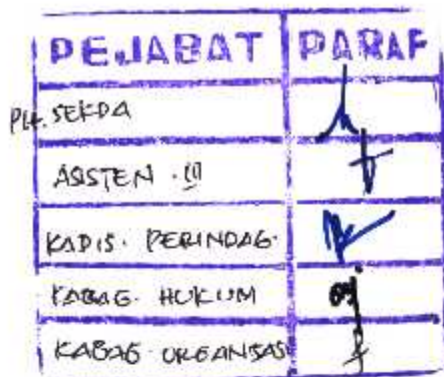 PEJABAT PARAF
Plt. SEKDA
ASISTEN . III
KADIS. PERINDAG.
KABAG. HUKUM
KABAG ORGANISASI